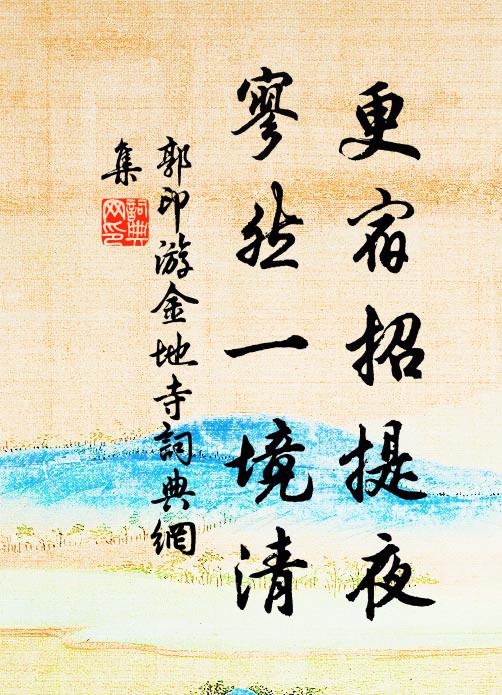 更宿招提夜
寥然一境清
郭印游金地寺詞典網
集
詞典网印